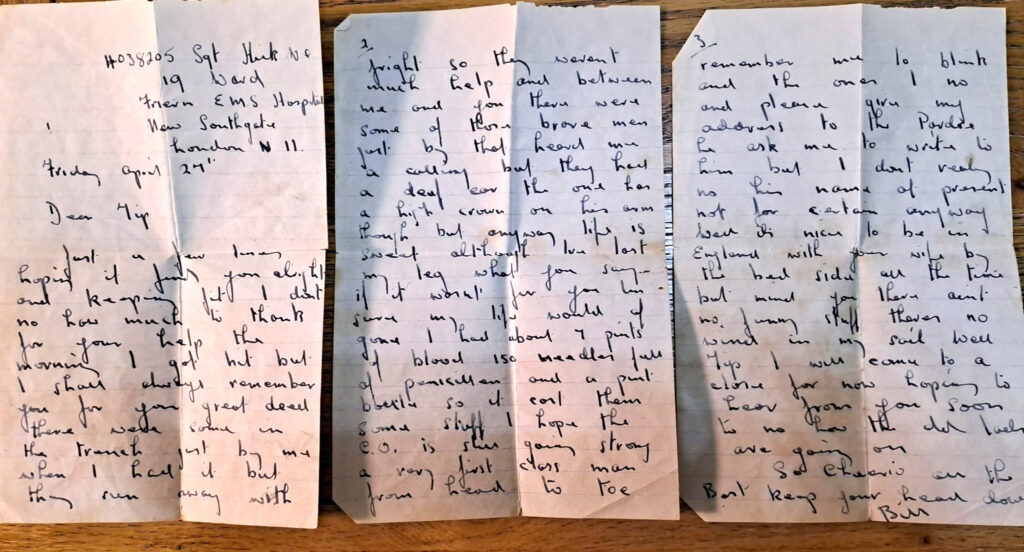 4038205 Sgt Huck W C
19 Ward
Friern E.M.S Hospital
New Southgate
London N 11.
Friday april 27"
Dear Tip
Just a few lines
hoping it finds you alright
and keeping fit I dont
no how much to thank
for your help the
morning I got hit but
I shall always remember
you for your great deed
there were some in
the trench just by me
when I had it but
they run away with
2
fright so they werent
much help and between
me and you there were
some of those brave men
just by that heard me
a calling but they had
a deaf ear the one has
a high crown on his arm
though but anyway life is
sweet although Ive lost
my leg what you say
if it wasnt for you Im
sure my life would of
gone I had about 7 pints
of blood 150 needles full
of penicillen and a pint
bottle so it cost them
some stuff I hope the
C.O. is still going strong
a very first class man
from head to toe
3
remember me to blink
and the ones I no
and please give my
address to the Pardre
he ask me to write to
him but I dont really
no his name at present
not for certain anyway
well its nice to be in
England with your wife by
the bed side all the time
but mind you there aint
no funny stuff theres no
wind in my sail well
Tip I will come to a
close for now hoping to
hear from you soon
to no how the old lads
are going on
So Cheerio all the
Best keep your head down
Bill